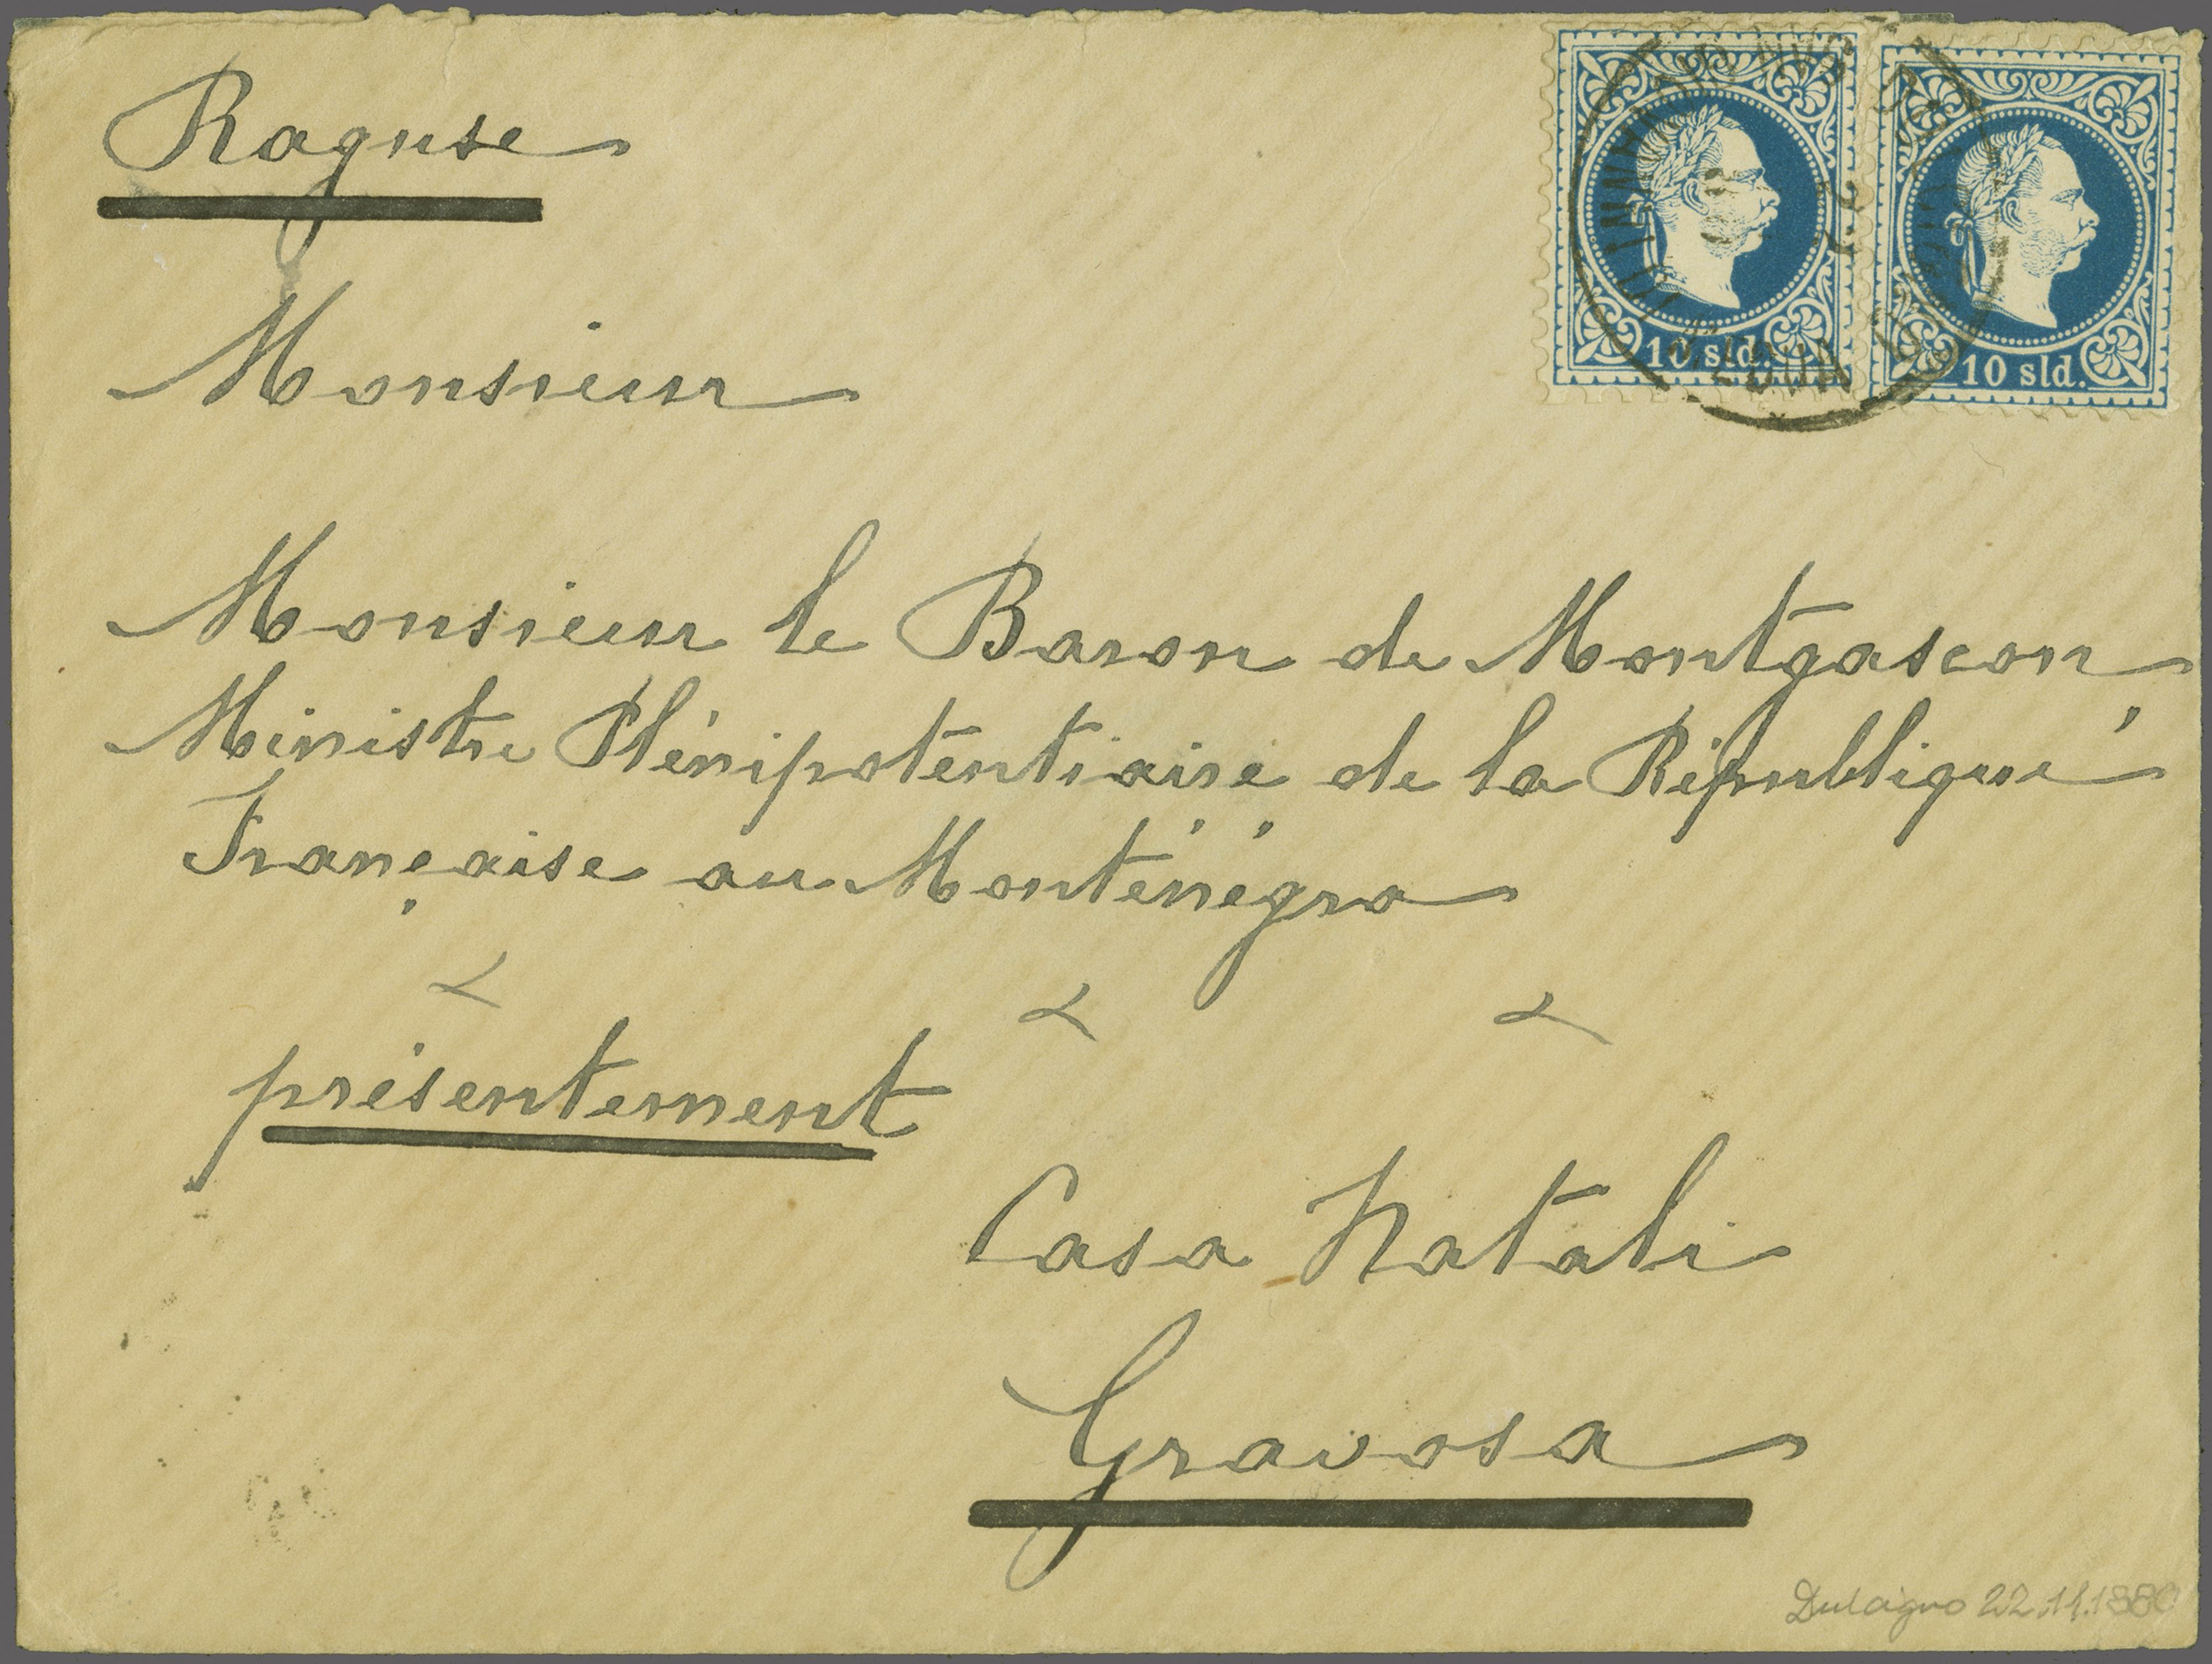 Raguse
10 sld.
10 sld.
Monsieur
Monsieur le Baron de Montgascon
Ministre Plénipotentiaire de la République
Française au Monténégro
présentement
Casa Natali
Gravosa
Dulcigno 22.11.1880